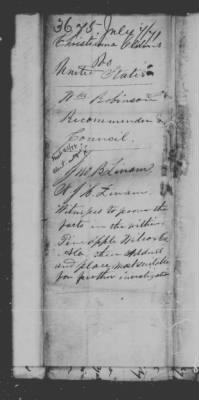 3678 - July
Christiana
vs
United States
Wm Robinson
Recommended
Council.
J W B Linam
A J A. Linam.
Witness to prove the
facts in the within
Pine apple Wilcox Co
Ala their address
and place most suitable
for further investigation